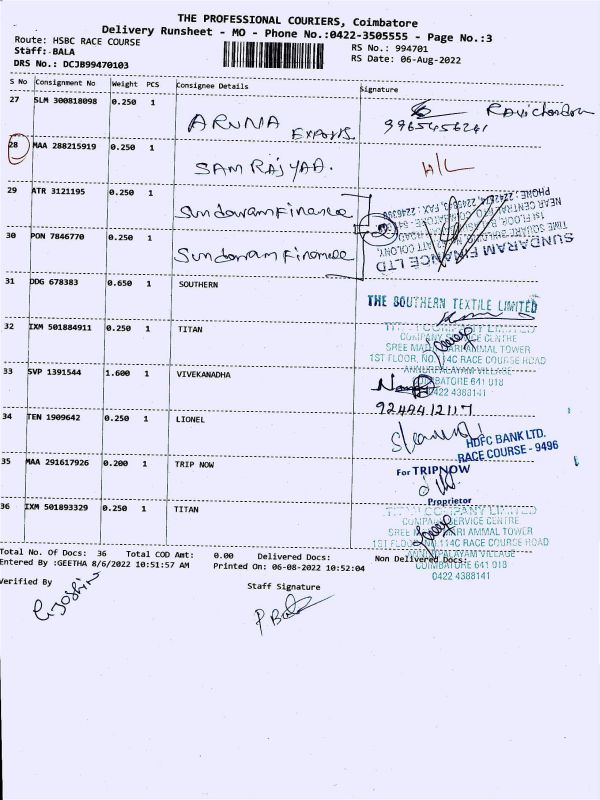 THE PROFESSIONAL COURIERS, Coimbatore
Delivery Runsheet - MO - Phone No.:0422-3505555 - Page No.:3
Route: HSBC RACE COURSE
RS No.: 994701
Staff:-BALA
RS Date: 06-Aug-2022
DRS No.: DCJB99470103
S No Consignment No Weight PCS Consignee Details Signature
27 SLM 300818098 0.250 1 ARUNA EXPORTS
9965456241
28 MAA 288215919 0.250 1 SAM RAJYAA. H/L
29 ATR 3121195 0.250 1 Sundaram Finance
30 PON 7846770 0.250 1 Sundaram Finance
SUNDARAM FINANCE LTD
31 DDG 678383 0.650 1 SOUTHERN
THE SOUTHERN TEXTILE LIMITED
32 IXM 501884911 0.250 1 TITAN
TITAN COMPANY LIMITED
COMPANY SERVICE CENTRE
SREE MARIAMMAL TOWER
1ST FLOOR, NO.114C RACE COURSE ROAD
COIMBATORE 641 018
0422 4388141
33 SVP 1391544 1.600 1 VIVEKANADHA
9244412117
34 TEN 1909642 0.250 1 LIONEL
HDFC BANK LTD.
RACE COURSE - 9496
35 MAA 291617926 0.200 1 TRIP NOW
For TRIPNOW
Proprietor
36 IXM 501893329 0.250 1 TITAN
TITAN COMPANY LIMITED
COMPANY SERVICE CENTRE
SREE MARI AMMAL TOWER
1ST FLOOR, NO.114C RACE COURSE ROAD
COIMBATORE 641 018
0422 4388141
Total No. Of Docs: 36 Total COD Amt: 0.00 Delivered Docs: Non Delivered Docs:
Entered By :GEETHA 8/6/2022 10:51:57 AM Printed On: 06-08-2022 10:52:04
Verified By
Staff Signature